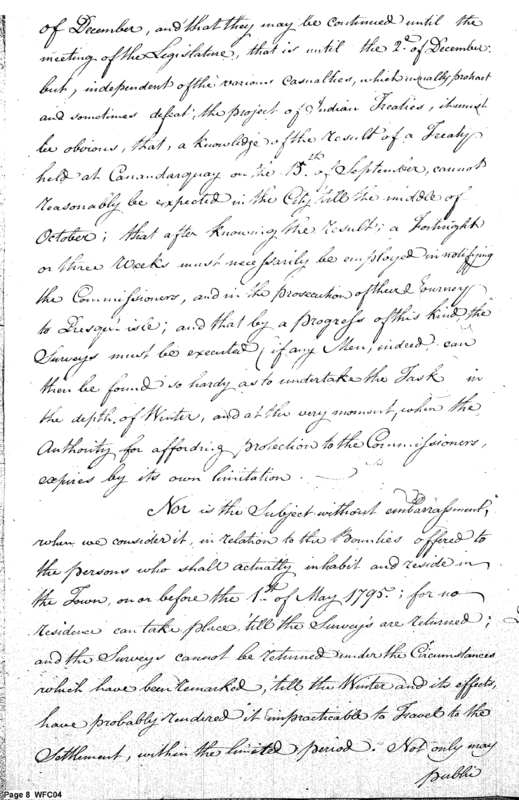 of December, and that they may be continued until the
meeting of the Legislature, that is until the 2d of December:
but, independent of the various casualties, which usually protract
and sometimes defeat, the project of Indian Treaties, it must
be obvious, that, a knowledge of the result of a Treaty
held at Canandarquay on the 15th of September, cannot
reasonably be expected in the City till the middle of
October; that after knowing the result; a Fortnight
or three Weeks must necessarily be employed in notifying
the Commissioners, and in the prosecution of their Journey
to Presqu-isle; and that by a progress of this kind, the
Surveys must be executed, (if any Men, indeed, can
then be found so hardy as to undertake the Task in
the depth of Winter, and at the very moment, when the
Authority for affording protection to the Commissioners,
expires by its own limitation.
Nor is the Subject without embarrassment,
when we consider it, in relation to the Bounties offered to
the persons who shall actually inhabit and reside in
the Town, on or before the 1st of May 1795: for no
residence can take place, 'till the Surveys are returned;
and the Surveys cannot be returned under the Circumstances
which have been remarked, 'till the Winter and its effects,
have probably rendered it impracticable to Travel to the
Settlement, within the limited period. Not only may
public
Page 8 WFC04